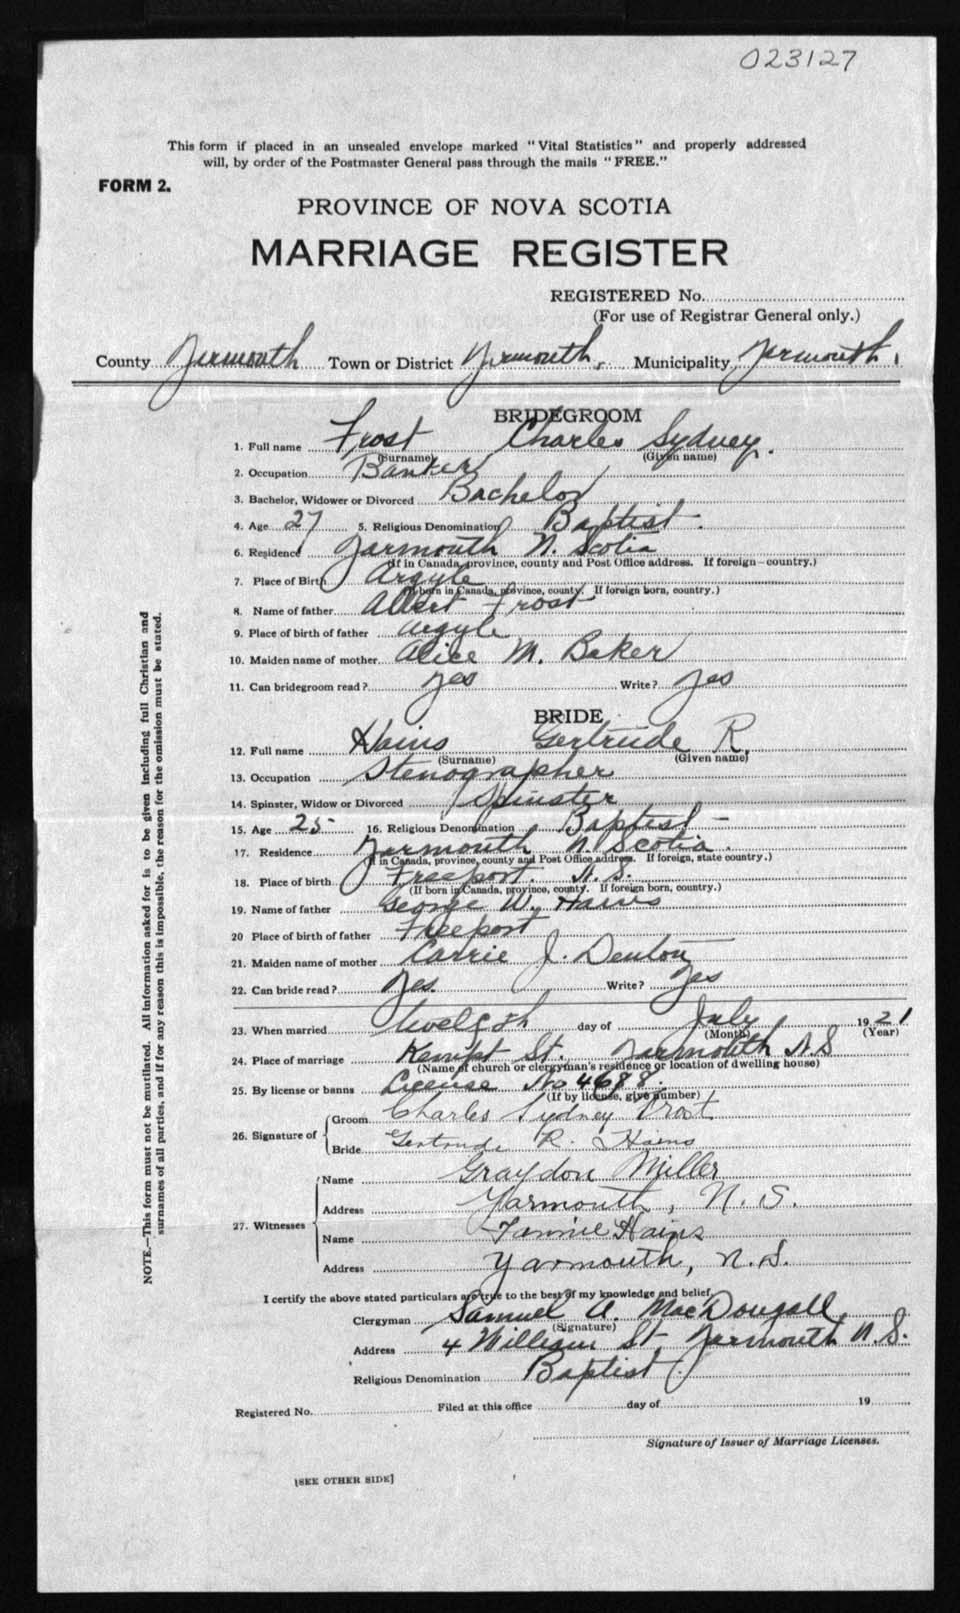 023127
This form if placed in an unsealed envelope marked "Vital Statistics" and properly addressed
will, by order of the Postmaster General pass through the mails "FREE."
FORM 2.
PROVINCE OF NOVA SCOTIA
MARRIAGE REGISTER
REGISTERED No.
(For use of Registrar General only.)
County Yarmouth Town or District Yarmouth, Municipality Yarmouth
BRIDEGROOM
1. Full name Frost Charles Sydney.
(Surname) (Given name)
2. Occupation Banker
3. Bachelor, Widower or Divorced Bachelor
4. Age 27 5. Religious Denomination Baptist.
6. Residence Yarmouth N. Scotia
(If in Canada, province, county and Post Office address. If foreign—country.)
7. Place of Birth Argyle
(If born in Canada, province, county. If foreign born, country.)
8. Name of father Albert Frost
9. Place of birth of father Argyle
10. Maiden name of mother Alice M. Baker
11. Can bridegroom read? Yes Write? Yes
BRIDE
12. Full name Hains Gertrude R.
(Surname) (Given name)
13. Occupation Stenographer
14. Spinster, Widow or Divorced Spinster
15. Age 25 16. Religious Denomination Baptist -
17. Residence Yarmouth N. Scotia.
(If in Canada, province, county and Post Office address. If foreign, state country.)
18. Place of birth Freeport. N. S.
(If born in Canada, province, county. If foreign born, country.)
19. Name of father George W. Hains
20 Place of birth of father Freeport
21. Maiden name of mother Carrie J. Denton
22. Can bride read? Yes. Write? Yes
23. When married day of July 1921
(Month) (Year)
24. Place of marriage Kempt St. Yarmouth N S
(Name of church or clergyman's residence or location of dwelling house)
25. By license or banns License No 4688.
(If by license, give number)
26. Signature of Groom Charles Sydney Frost
Bride Gertrude R. Hains
27. Witnesses Name Graydon Miller
Address Yarmouth, N. S.
Name Fannie Hains
Address Yarmouth, N. S.
I certify the above stated particulars are true to the best of my knowledge and belief.
Clergyman Samuel A. MacDougall
(Signature)
Address 4 William St, Yarmouth N. S.
Religious Denomination Baptist.
Registered No. Filed at this office day of 19
Signature of Issuer of Marriage Licenses.
[SEE OTHER SIDE]
NOTE.—This form must not be mutilated. All information asked for is to be given including full Christian and
surnames of all parties, and if for any reason this is impossible, the reason for the omission must be stated.